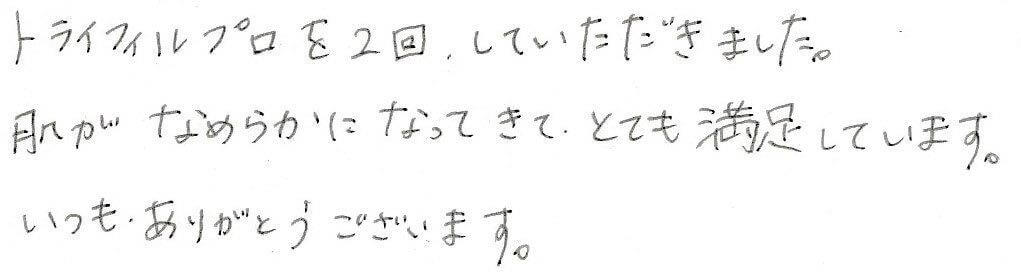 トライフィルプロを2回、していただきました。
肌がなめらかになってきて、とても満足しています。
いつも、ありがとうございます。